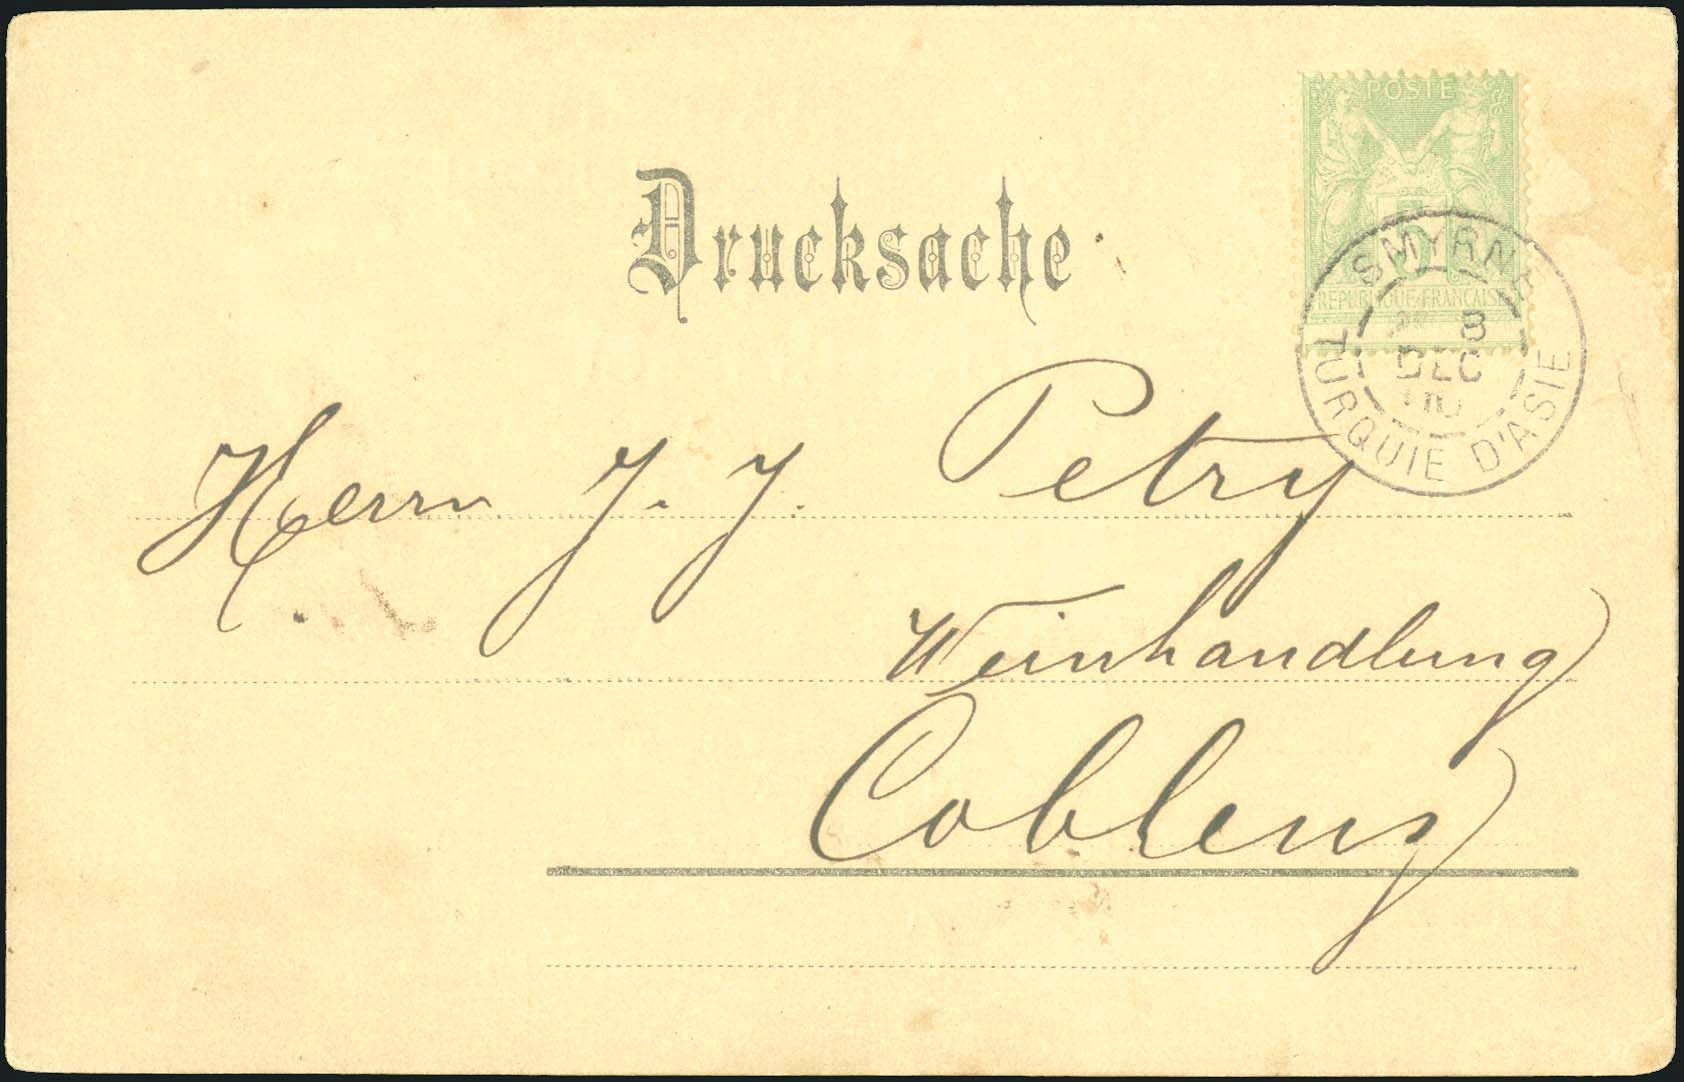 POSTE
5
REPUBLIQUE FRANÇAISE
SMYRNE
8
DEC
TURQUIE D'ASIE
Drucksache
Herrn J. J. Petry
Weinhandlung
Coblenz